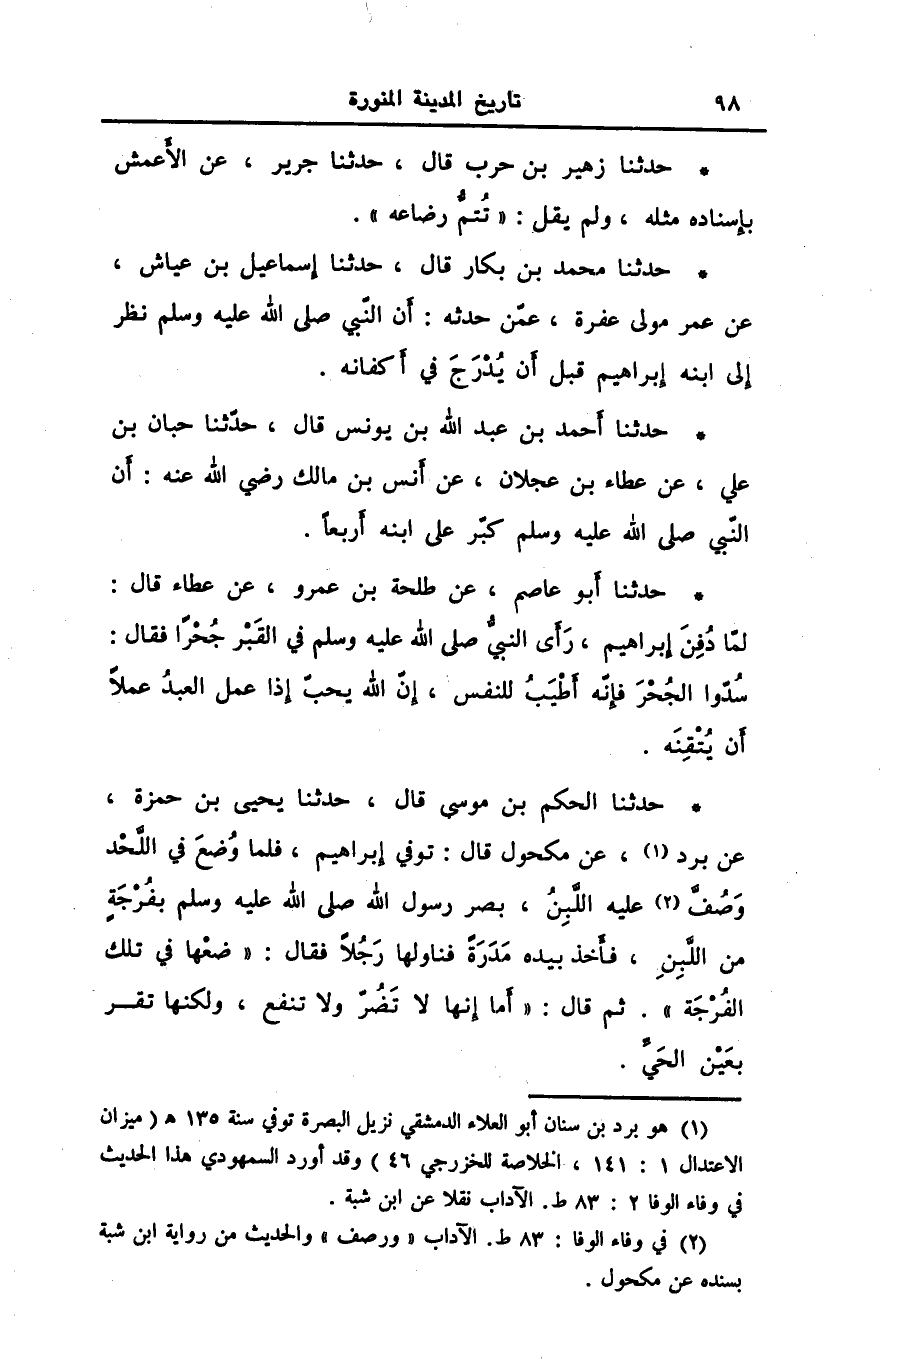 ٩٨ تاريخ المدينة المنورة
* حدثنا زهير بن حرب قال ، حدثنا جرير ، عن الأَعمش
بإسناده مثله ، ولم يقل : « تُتمُّ رضاعه » .
* حدثنا محمد بن بكار قال ، حدثنا إسماعيل بن عياش ،
عن عمر مولى عفرة ، عمّن حدثه : أَن النّبي صلى الله عليه وسلم نظر
إلى ابنه إبراهيم قبل أَن يُدْرَجَ في أَكفانه .
* حدثنا أَحمد بن عبد الله بن يونس قال ، حدّثنا حبان بن
علي ، عن عطاء بن عجلان ، عن أَنس بن مالك رضي الله عنه : أَن
النّبي صلى الله عليه وسلم كبّر على ابنه أَربعاً .
* حدثنا أَبو عاصم ، عن طلحة بن عمرو ، عن عطاء قال :
لمّا دُفِنَ إبراهيم ، رَأَى النبيُّ صلى الله عليه وسلم في القَبْر جُحْرًا فقال :
سُدّوا الجُحْرَ فإنّه أَطْيَبُ للنفس ، إنّ الله يحبّ إذا عمل العبدُ عملاً
أَن يُتْقِنَه .
* حدثنا الحكم بن موسي قال ، حدثنا يحيى بن حمزة ،
عن برد (١) ، عن مكحول قال : توفي إبراهيم ، فلما وُضعَ في اللَّحْد
وَصُفَّ (٢) عليه اللَّبِنُ ، بصر رسول الله صلى الله عليه وسلم بفُرْجَةٍ
من اللَّبِنِ ، فأَخذ بيده مَدَرَةً فناولها رَجُلاً فقال : « ضعْها في تلك
الفُرْجَة » . ثم قال : « أَما إنها لا تَضُرّ ولا تنفع ، ولكنها تقـــر
بعَيْن الحَيِّ .
(١) هو برد بن سنان أبو العلاء الدمشقي نزيل البصرة توفي سنة ١٣٥ هـ ( ميزان
الاعتدال ١ : ١٤١ ، الخلاصة للخزرجي ٤٦ ) وقد أورد السمهودي هذا الحديث
في وفاء الوفا ٢ : ٨٣ ط. الآداب نقلا عن ابن شبة .
(٢) في وفاء الوفا : ٨٣ ط. الآداب « ورصف » والحديث من رواية ابن شبة
بسنده عن مكحول .